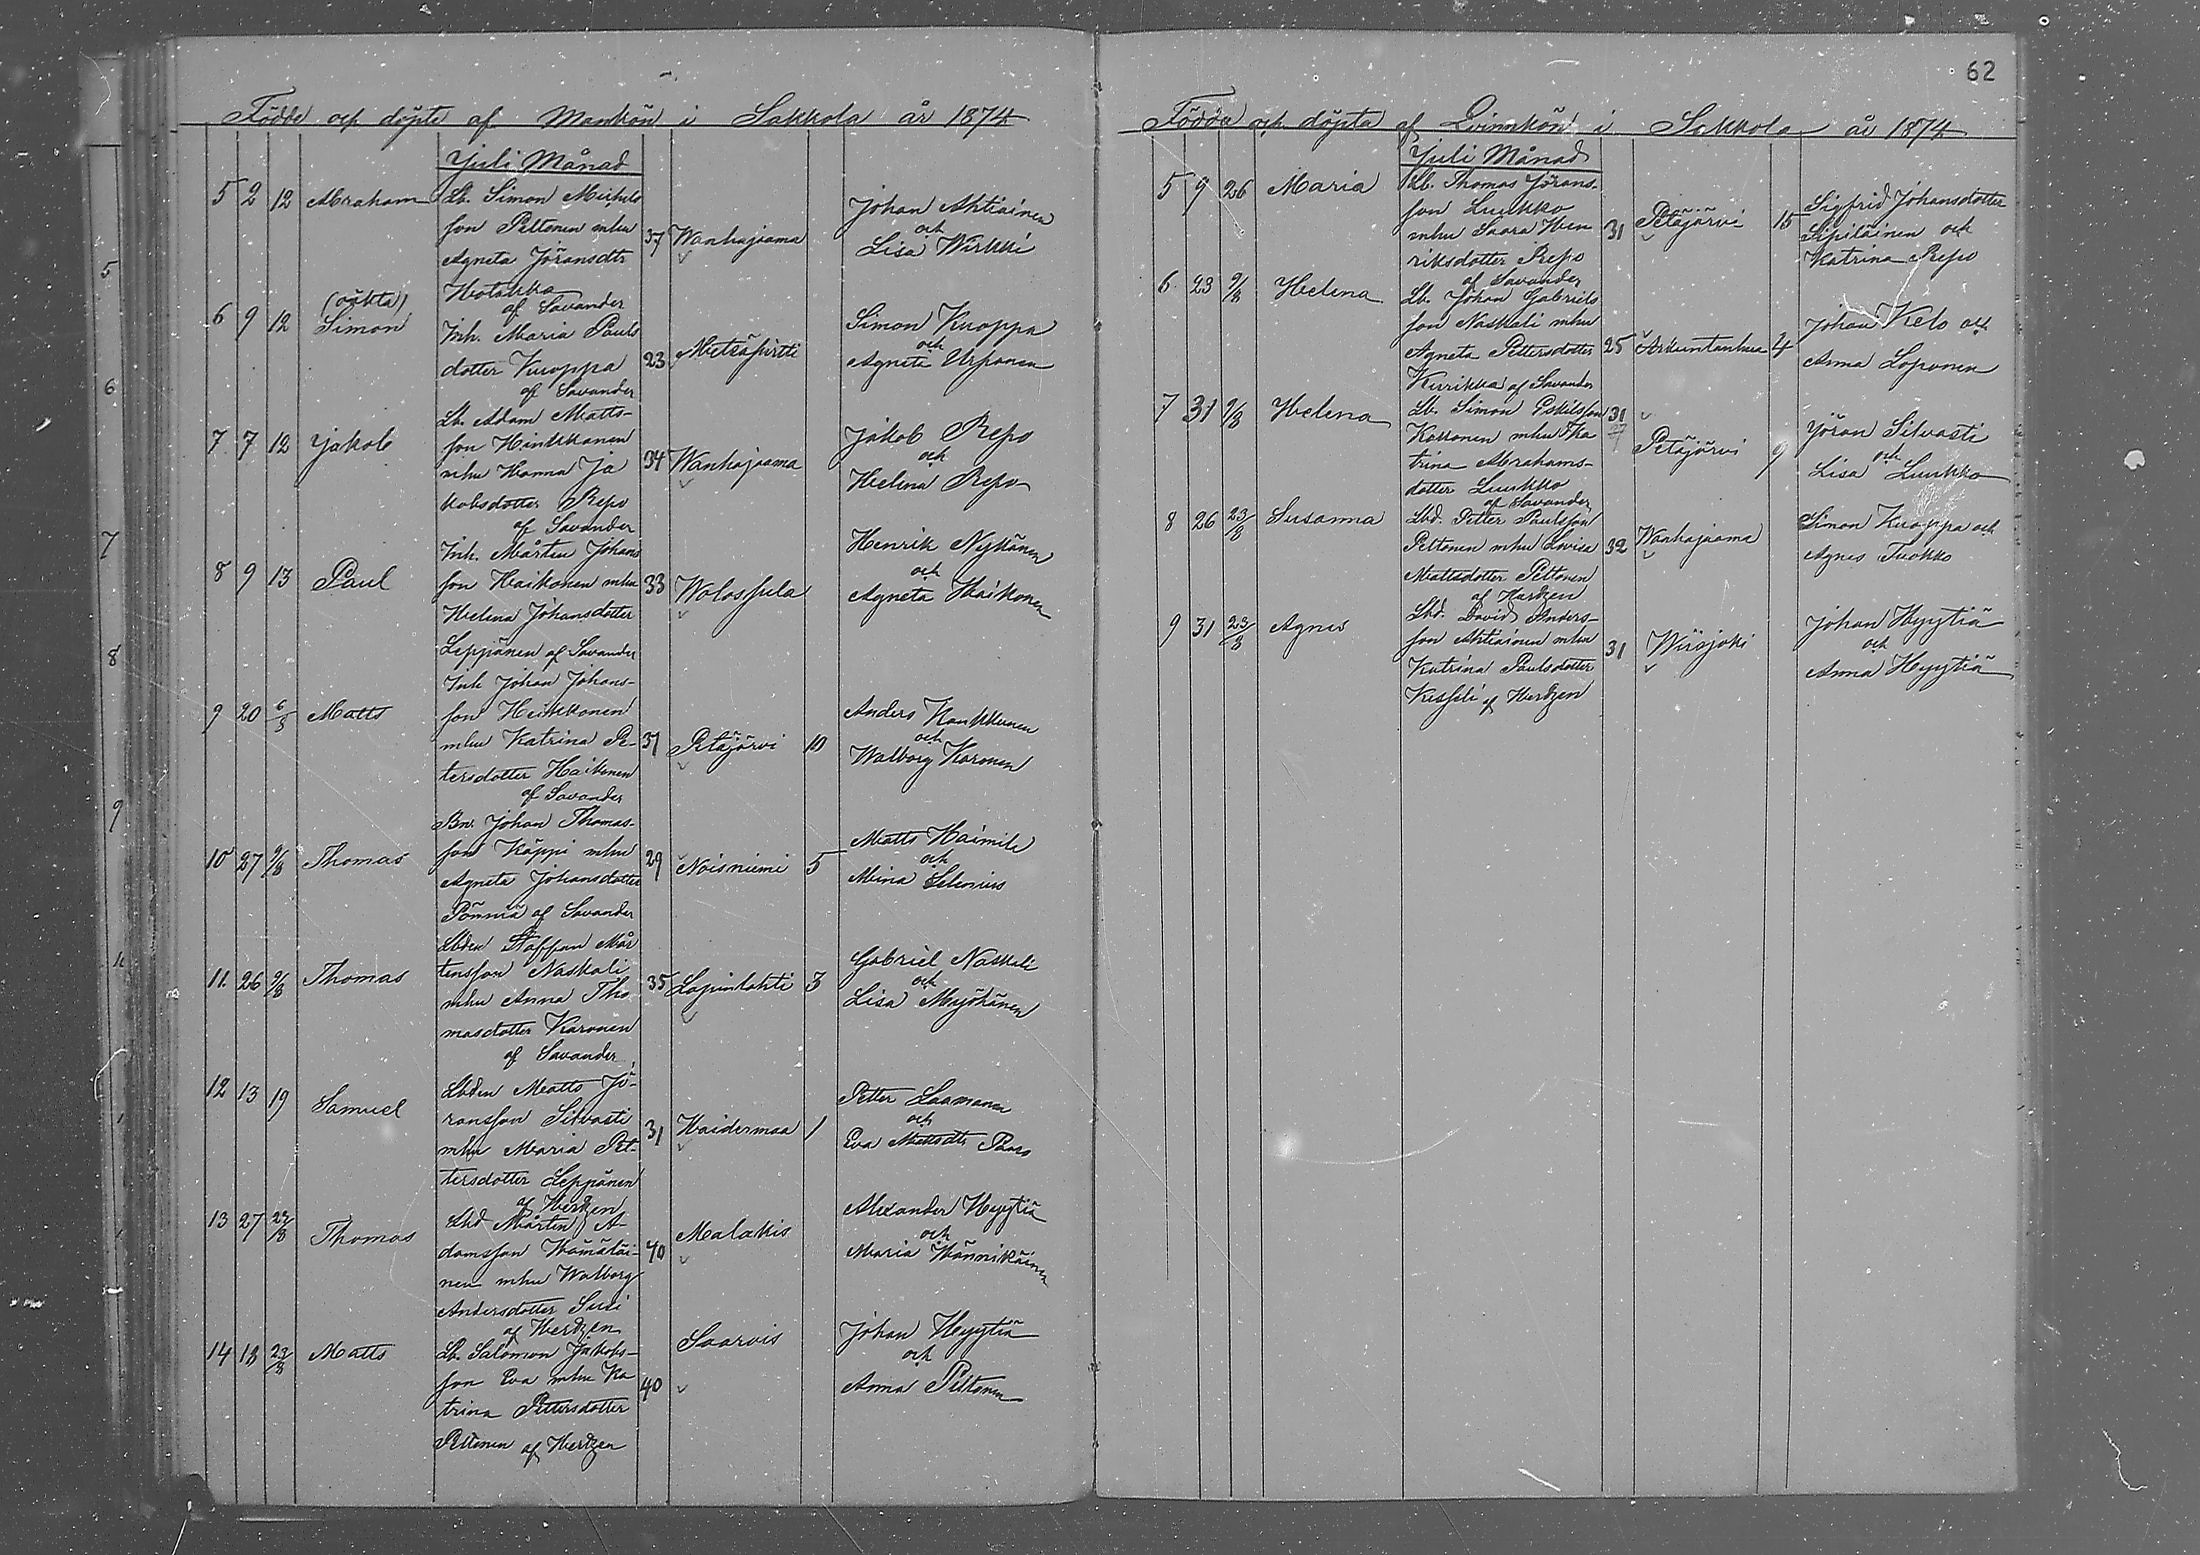 Födde och döpte af Mankön i Sakkola år 1874
Juli Månad
5 2 12 Abraham Lb. Simon Michels
son Peltonen mhu
Agneta Jöransdtr
Hotokka
af Savander
37 Wanhajaama
Johan Ahtiainen
och
Lisa Wirkki
6 9 12 (oäkta)
Simon
Inh. Maria Pauls
dotter Kuoppa
af Savander
23 Metsäpirtti
Simon Kuoppa
och
Agneta Urponen
7 7 12 Jakob
Lb. Adam Matts-
son Hinkkanen
mhu Hanna Ja
kobsdotter Repo
af Savander
34 Wanhajaama
Jakob Repo
och
Helena Repo
8 9 13 Paul
Inh. Mårten Johans
son Haikonen mhu
Helena Johansdotter
Leppänen af Savander
33 Wolossula
Henrik Nykänen
och
Agneta Haikonen
9 20 6/8 Matts
Inh Johan Johans-
son Heikkonen
mhu Katrina Pe-
tersdotter Haikonen
af Savander
37 Petäjärvi 10
Anders Kaukkonen
och
Walborg Karonen
10 27 9/8 Thomas
Bn. Johan Thomas-
son Käppi mhu
Agneta Johansdotter
Pönniä af Savander
29 Noisniemi 5
Matts Haimila
och
Mina Selenius
11. 26 9/8 Thomas
Lbden Staffan Mår
tensson Naskali
mhu Anna Tho
masdotter Karonen
af Savander
35 Lapinlahti 3
Gabriel Naskali
och
Lisa Myöhänen
12 13 19 Samuel
Lbden Matts Jö-
ransson Silvasti
mhu Maria Pet-
tersdotter Leppänen
af Hertzen
31 Haidermaa 1
Petter Laamanen
och
Eva Mattsdtr Paaso
13 27 23/8 Thomas
Lbd Mårten A-
damsson Hämäläi-
nen mhu Walborg
Andersdotter Susi
af Hertzen
40 Malakis
Alexander Hyytiä
och
Maria Hännikäinen
14 18 23/8 Matts
Lb. Salomon Jakobs-
son Eva mhu Ka
trina Pettersdotter
Peltonen af Hertzen
40 Saarvis
Johan Hyytiä
och
Anna Peltonen
62
Födda och döpta af Qvinnkön i Sakkola år 1874
Juli Månad
5 9 26 Maria
Lb. Thomas Jörans-
son Luukko
mhu Saara Hen
riksdotter Repo
af Savander
31 Petäjärvi 15
Sigfrid Johansdotter
Sipiläinen och
Katrina Repo
6 23 9/8 Helena
Lb. Johan Gabriels
son Naskali mhu
Agneta Pettersdotter
Kirrikka af Savander
25 Arkuntanhua 4
Johan Kelo och
Anna Loponen
7 31 9/8 Helena
Lb. Simon Eskilsson
Kokkonen mhu Ka
trina Abrahams-
dotter Luukko
af Savander
31 Petäjärvi 9
Jöran Silvasti
och
Lisa Luukko
8 26 23/8 Susanna
Lbd. Petter Paulsson
Peltonen mhu Lovisa
Mattsdotter Peltonen
af Hertzen
32 Wanhajaama
Simon Kuoppa och
Agnes Tuokko
9 31 23/8 Agnes
Lbd. David Anders-
son Ahtiainen mhu
Katrina Paulsdotter
Kesseli af Hertzen
31 Wiisjoki
Johan Hyytiä
och
Anna Hyytiä
5
6
7
8
9